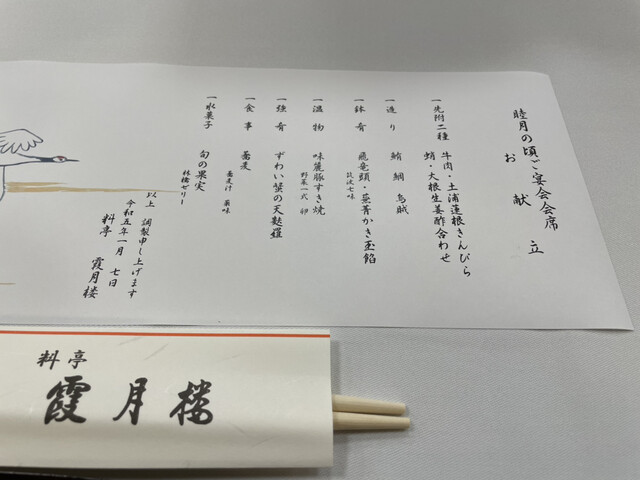 睦月の頃ご宴会会席
お献立
一先附二種 牛肉・土浦蓮根きんぴら
蛸・大根生姜酢合わせ
一造り 鮪 鯛 烏賊
一鉢肴 飛竜頭・蕪菁かき玉餡
筑波七味
一温物 味麗豚すき焼
野菜一式 卵
一強肴 ずわい蟹の天麩羅
一食事 蕎麦
蕎麦汁 薬味
一水菓子 旬の果実
林檎ゼリー
以上 調製申し上げます
令和五年一月 七日
料亭 霞月楼
料亭
霞月楼